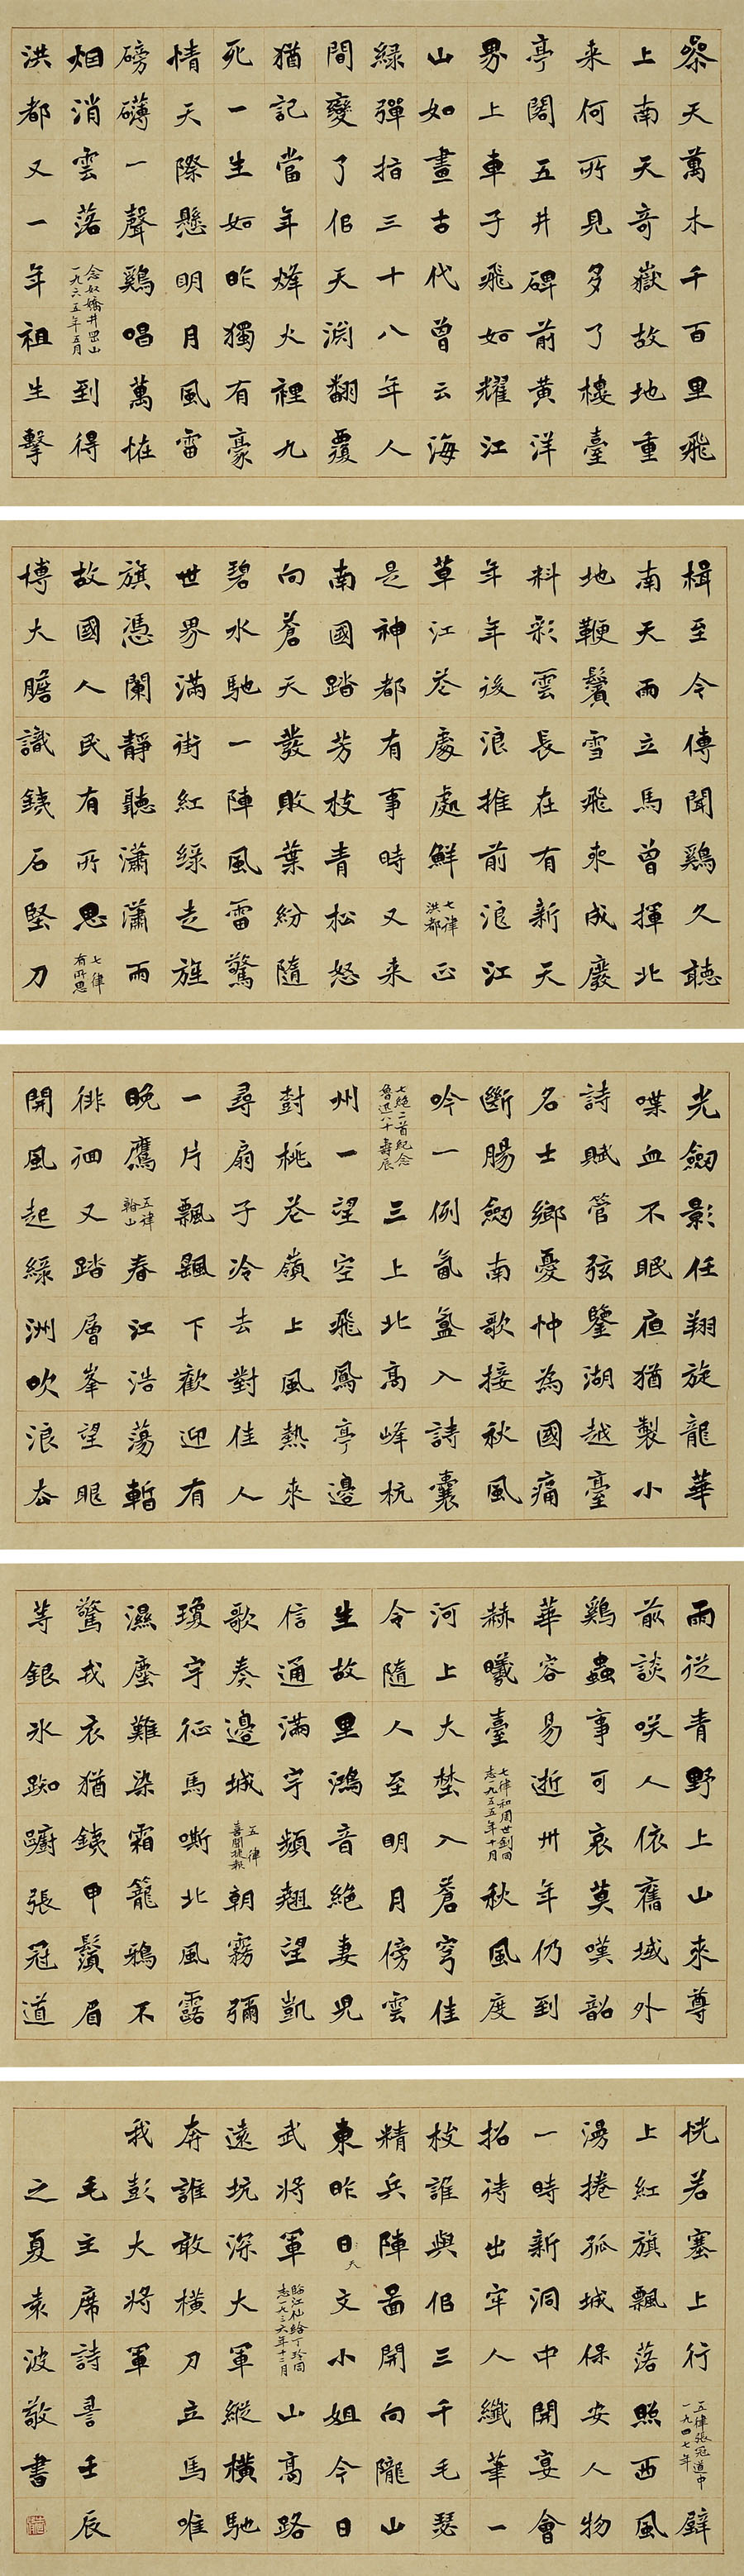 參天萬木千百里飛
上南天奇嶽故地重
来何所見多了樓臺
亭閣五井碑前黄洋
界上車子飛如耀江
山如畫古代曾云海
綠彈指三十八年人
間變了似天淵翻覆
猶記當年烽火裡九
死一生如昨獨有豪
情天際懸明月風雷
磅礴一聲鷄唱萬怪
烟消雲落 念奴嬌井岡山一九六五年五月 到得
洪都又一年祖生擊
楫至今傳聞鷄久聽
南天雨立馬曾揮北
地鞭鬢雪飛來成廢
料彩雲長在有新天
年年後浪推前浪江
草江花處處鮮 七律洪都 正
是神都有事時又来
南國踏芳枝青松怒
向蒼天發敗葉紛隨
碧水馳一陣風雷驚
世界滿街紅綠走旌
旗憑闌靜聽瀟瀟雨
故國人民有所思 七律有所思
博大膽識鐵石堅刀
光劍影任翔旋龍華
喋血不眠夜猶製小
詩賦管弦鑒湖越臺
名士鄉憂忡為國痛
斷腸劍南歌接秋風
吟一例氤氳入詩囊
七絶二首紀念魯迅八十壽辰 三上北高峰杭
州一望空飛鳳亭邊
樹桃花嶺上風熱來
尋扇子冷去對佳人
一片飄颻下歡迎有
晚鷹 五律 山 春江浩蕩暫
徘徊又踏層峯望眼
開風起綠洲吹浪去
雨從青野上山來尊
前談咲人依舊域外
鷄蟲事可哀莫嘆韶
華容易逝卅年仍到
赫曦臺 七律和周世釗同志一九五五年十月 秋風度
河上大埜入蒼穹佳
令隨人至明月傍雲
生故里鴻音絕妻兒
信通滿宇頻翹望凱
歌奏邊城 五律喜聞捷報 朝霧彌
瓊宇征馬嘶北風露
濕塵難染霜籠鴉不
驚戎衣猶鐵甲鬚眉
等銀冰踟躕張冠道
恍若塞上行 五律張冠道中一九四七年 壁
上紅旗飄落照西風
漫捲孤城保安人物
一時新洞中開宴會
招待出牢人纖筆一
枝誰與似三千毛瑟
精兵陣圖開向隴山
東昨日天文小姐今日
武將軍 臨江仙給丁玲同志一九三六年十二月 山高路
遠坑深大軍縱橫馳
奔誰敢橫刀立馬唯
我彭大將軍
毛主席詩書壬辰
之夏袁波敬書